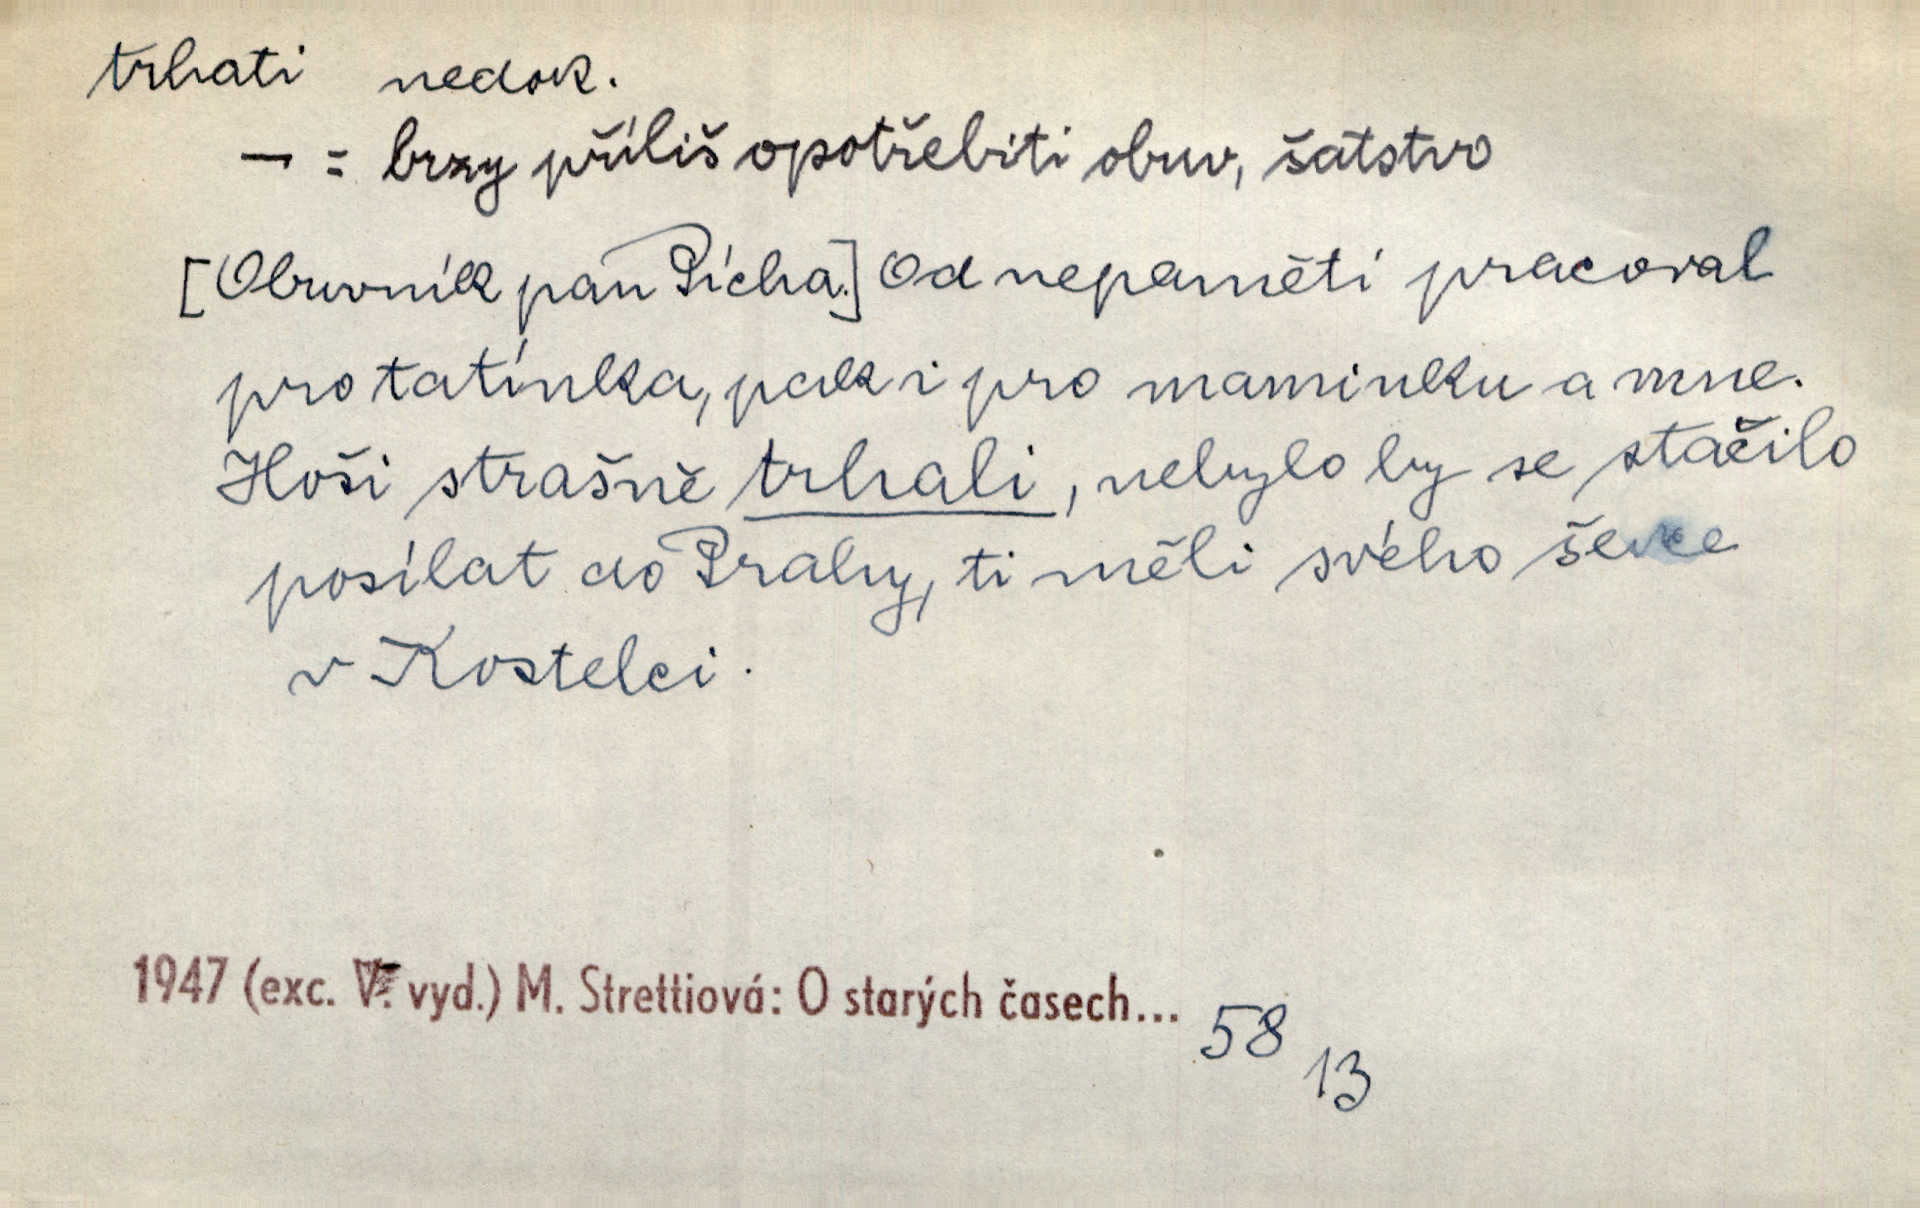 trhati nedok.
— = brzy příliš opotřebiti obuv, šatstvo
[Obuvník pan Pícha.] Od nepaměti pracoval
pro tatínka, pak i pro maminku a mne.
Hoši strašně trhali, nebylo by se stačilo
posílat do Prahy, ti měli svého ševce
v Kostelci.
1947 (exc. V. vyd.) M. Strettiová: O starých časech... 58
13